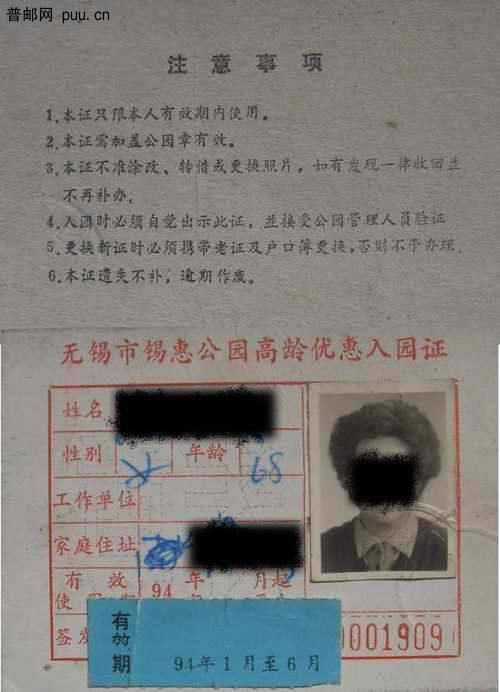 普邮网 puu.cn
注意事项
1.本证只限本人有效期内使用。
2.本证需加盖公园章有效。
3.本证不准涂改、转借或更换照片，如有发现一律收回並
不再补办。
4.入园时必须自觉出示此证，並接受公园管理人员验证
5.更换新证时必须携带老证及户口簿更换，否则不予办理。
6.本证遗失不补，逾期作废。
无锡市锡惠公园高龄优惠入园证
姓名
性别 女 年龄 68
工作单位
家庭住址
有效 94 年 月起
使
签发 0001909
有效期 94年1月至6月